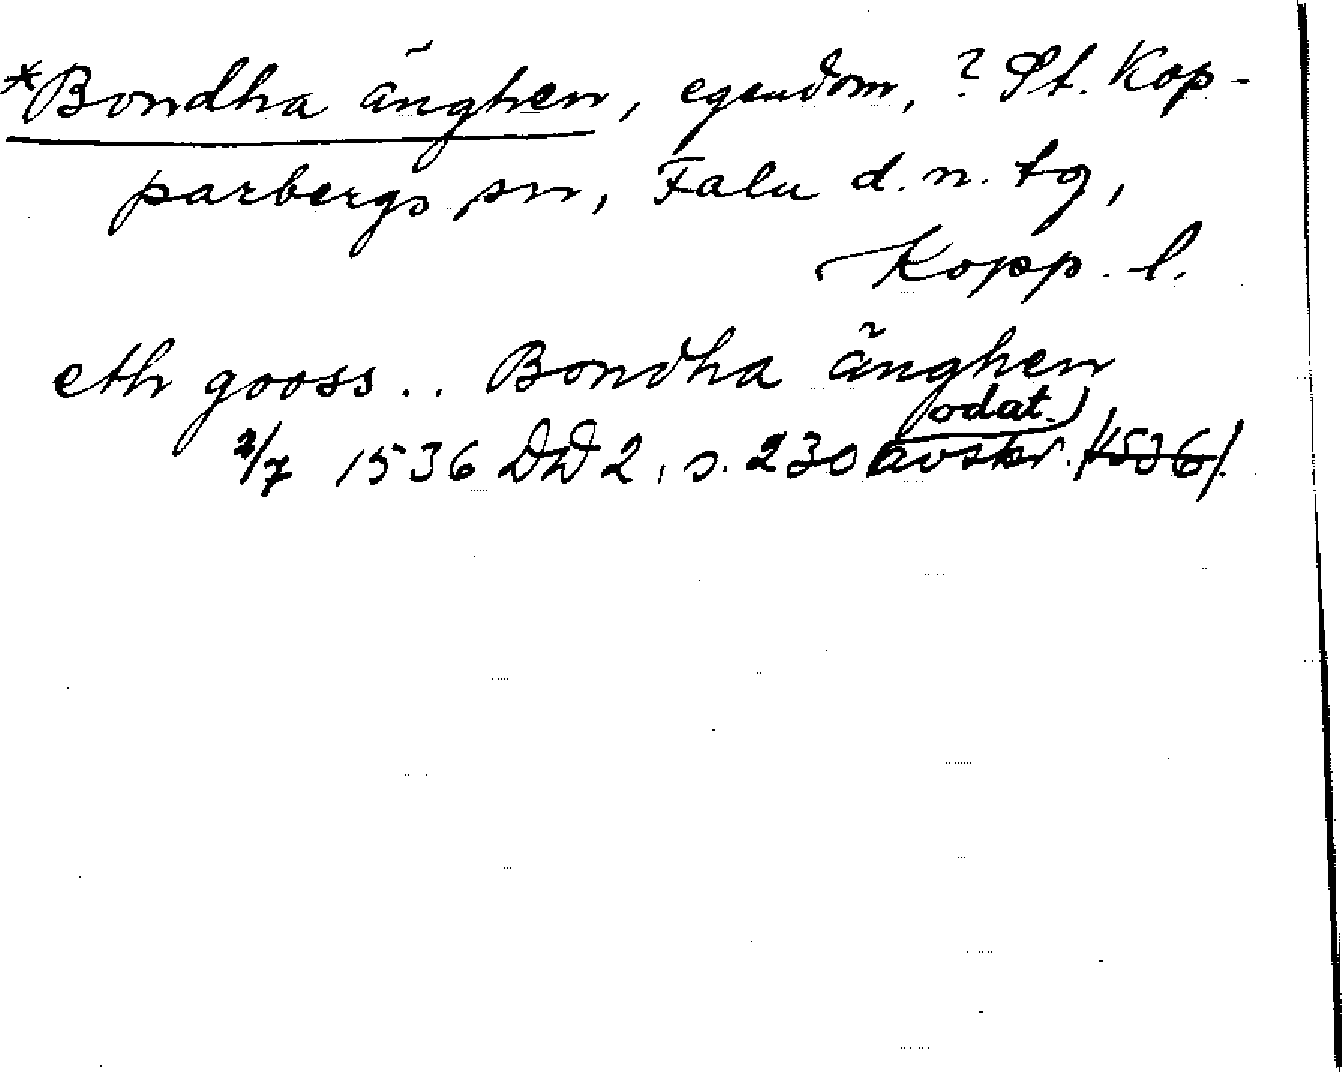 *Bondha änghen, egendom, ? St. Kop-
parbergs sn, Falu d.n. tg,
Kopp. l.
eth gooss.. Bondha änghen
odat.)
2/7 1536 DD 2, s. 230 avskr. /1536/.